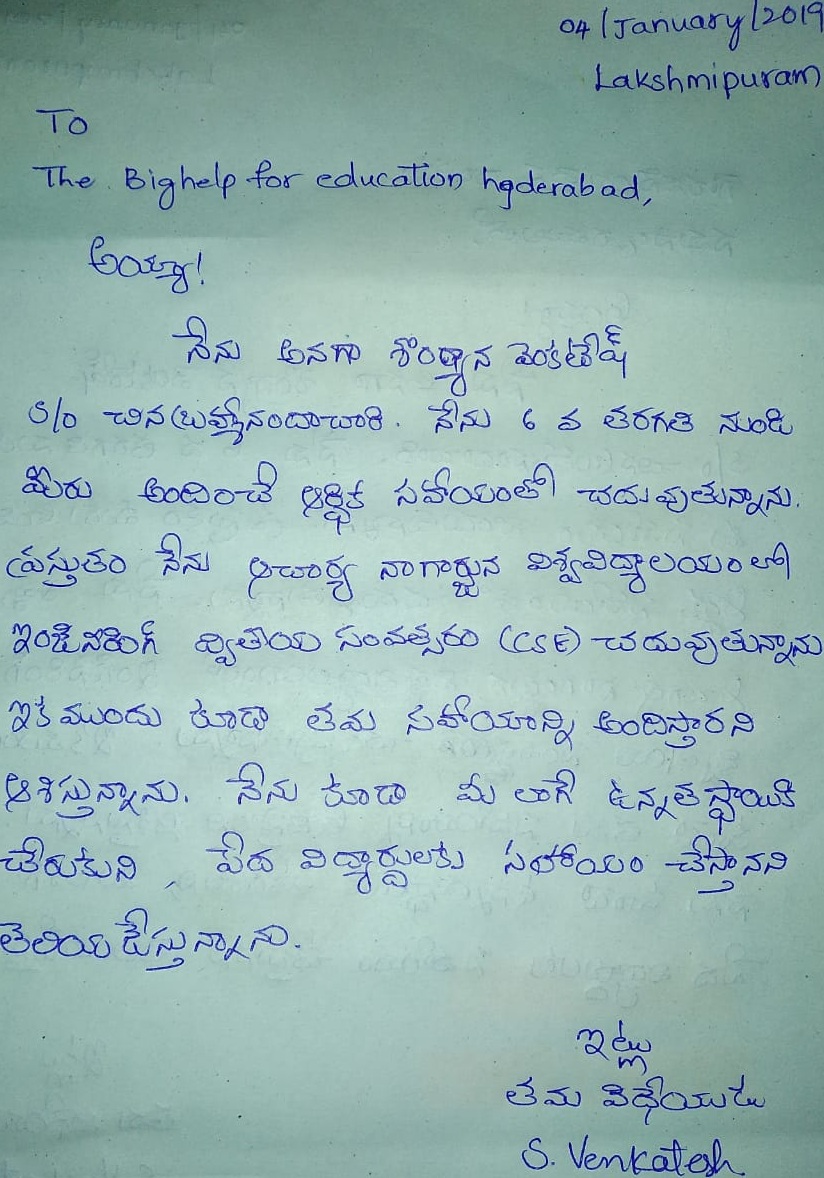 04/January/2019
Lakshmipuram
To
The Bighelp for education hyderabad,
అయ్యా!
నేను అనగా శొంఠ్యాన వెంకటేష్
S/o చినబ్రహ్మానందాచారి. నేను 6 వ తరగతి నుండి
మీరు అందించే ఆర్థిక సహాయంతో చదువుతున్నాను.
ప్రస్తుతం నేను ఆచార్య నాగార్జున విశ్వవిద్యాలయంలో
ఇంజినీరింగ్ ద్వితీయ సంవత్సరం (CSE) చదువుతున్నాను
ఇక ముందు కూడా తమ సహాయాన్ని అందిస్తారని
ఆశిస్తున్నాను. నేను కూడా మీ లాగే ఉన్నత స్థాయికి
చేరుకుని, పేద విద్యార్థులకు సహాయం చేస్తానని
తెలియజేస్తున్నాను.
ఇట్లు
తమ విధేయుడు
S. Venkatesh